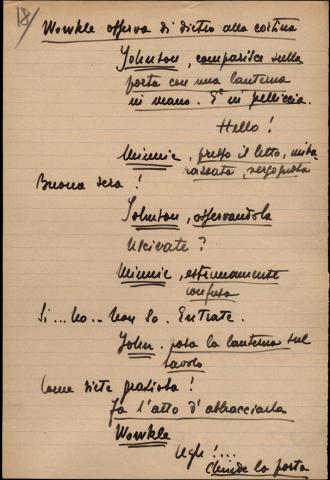 18)
Wowkle osserva di dietro alla cortina
Johnson, comparisce sulla
porta con una lanterna
in mano. È in pelliccia.
Hello!
Minnie, presso il letto, imba
razzata, vergognosa
Buona sera!
Johnson, osservandola
Uscivate?
Minnie, estremamente
confusa
Si... no... Non so. Entrate.
John. posa la lanterna sul
tavolo
Come siete graziosa!
Fa l'atto d'abbracciarla
Wowkle
Ugh!...
Chiude la porta